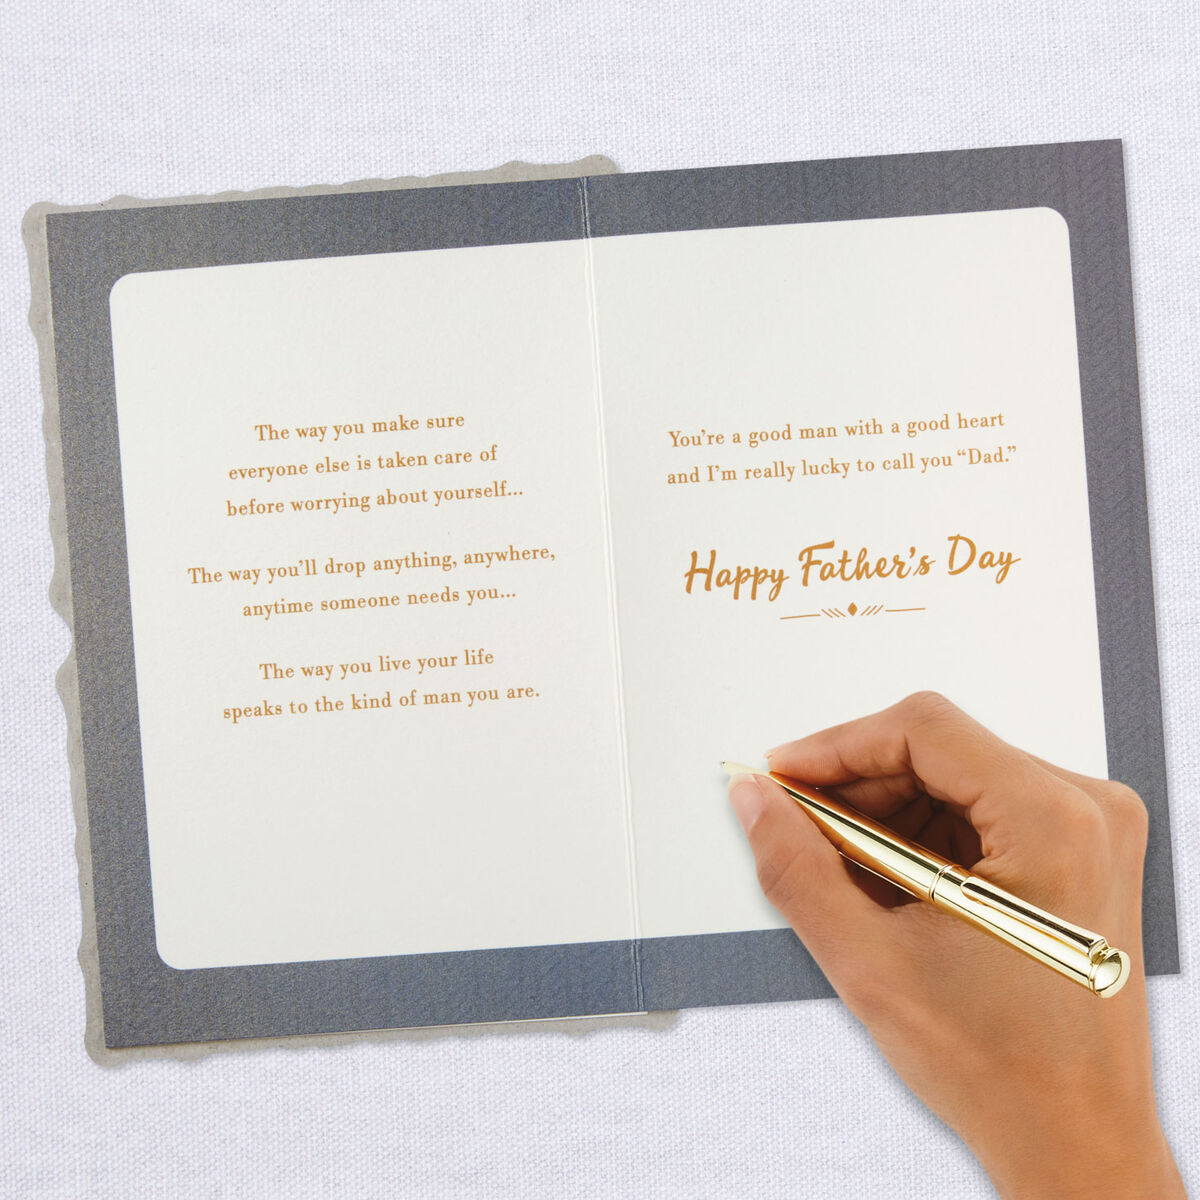 The way you make sure
everyone else is taken care of
before worrying about yourself...
The way you'll drop anything, anywhere,
anytime someone needs you...
The way you live your life
speaks to the kind of man you are.
You're a good man with a good heart
and I'm really lucky to call you “Dad.”
Happy Father's Day